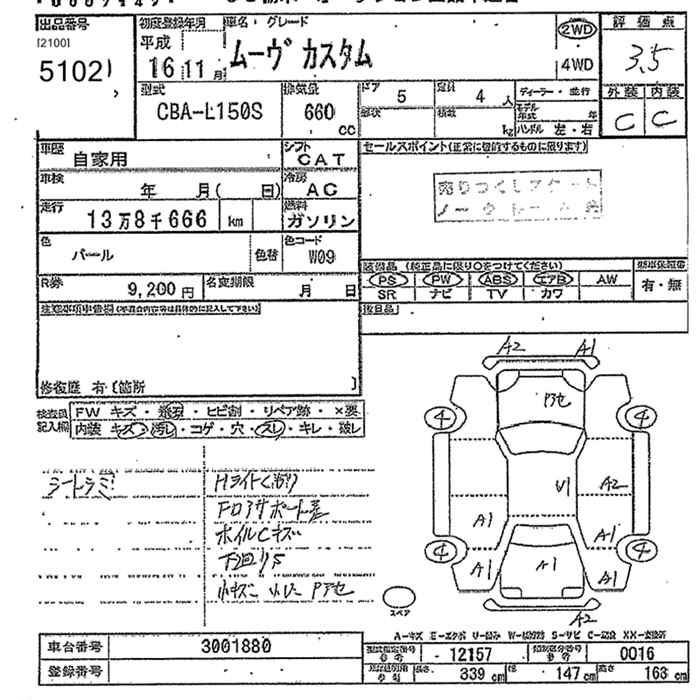 出品番号
[2100]
5102
初度登録年月
平成
16 11月
車名・グレード
ムーヴ カスタム
2WD
4WD
評価点
3.5
型式
CBA-L150S
排気量
660
CC
ドア
5
定員
4 人
形状
積数
kg
ディーラー・並行
モデル
年式 年
ハンドル 左・右
外装 内装
C C
車歴
自家用
シフト
CAT
セールスポイント(正常に登録するものに限ります)
車検
年 月( 日)
冷房
AC
走行
13万8千666 km
燃料
ガソリン
色
パール
色替
色コード
W09
装備品 (純正品に限り○をつけてください)
PS PW ABS エアB AW
SR ナビ TV カワ
有・無
R券
9,200円
名変期限
月 日
修復歴 有 (箇所 )
検査員
記入欄
FW キズ・ ・ヒビ割・リペア跡・×要
内装 キズ・汚レ・コゲ・穴・スレ・キレ・破レ
A2 A1
Pアセ
4 4
V1 A2
A1 A1
4 4
A1 A1 A1
A2
シートシミ
Hライトくもり
ホイルCキズ
下回りS
小キズ 小ヘコ Pアセ
スペア
車台番号
3001880
登録番号
12157
0016
長さ 339 cm
幅 147 cm
高さ 163 cm